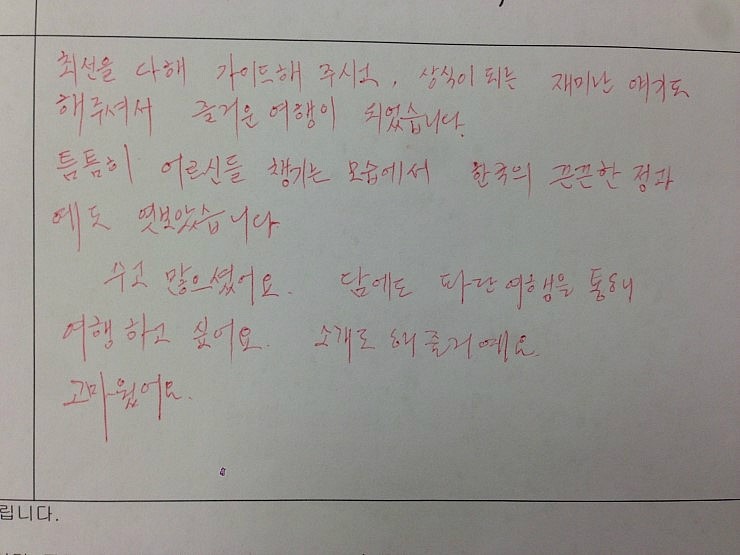 최선을 다해 가이드해 주시고, 상식이 되는 재미난 얘기도
해주셔서 즐거운 여행이 되었습니다.
틈틈히 어르신들 챙기는 모습에서 한국의 끈끈한 정과
예도 엿보았습니다
수고 많으셨어요. 담에도 파란여행을 통해
여행하고 싶어요. 소개도 해줄거예요.
고마웠어요.
립니다.